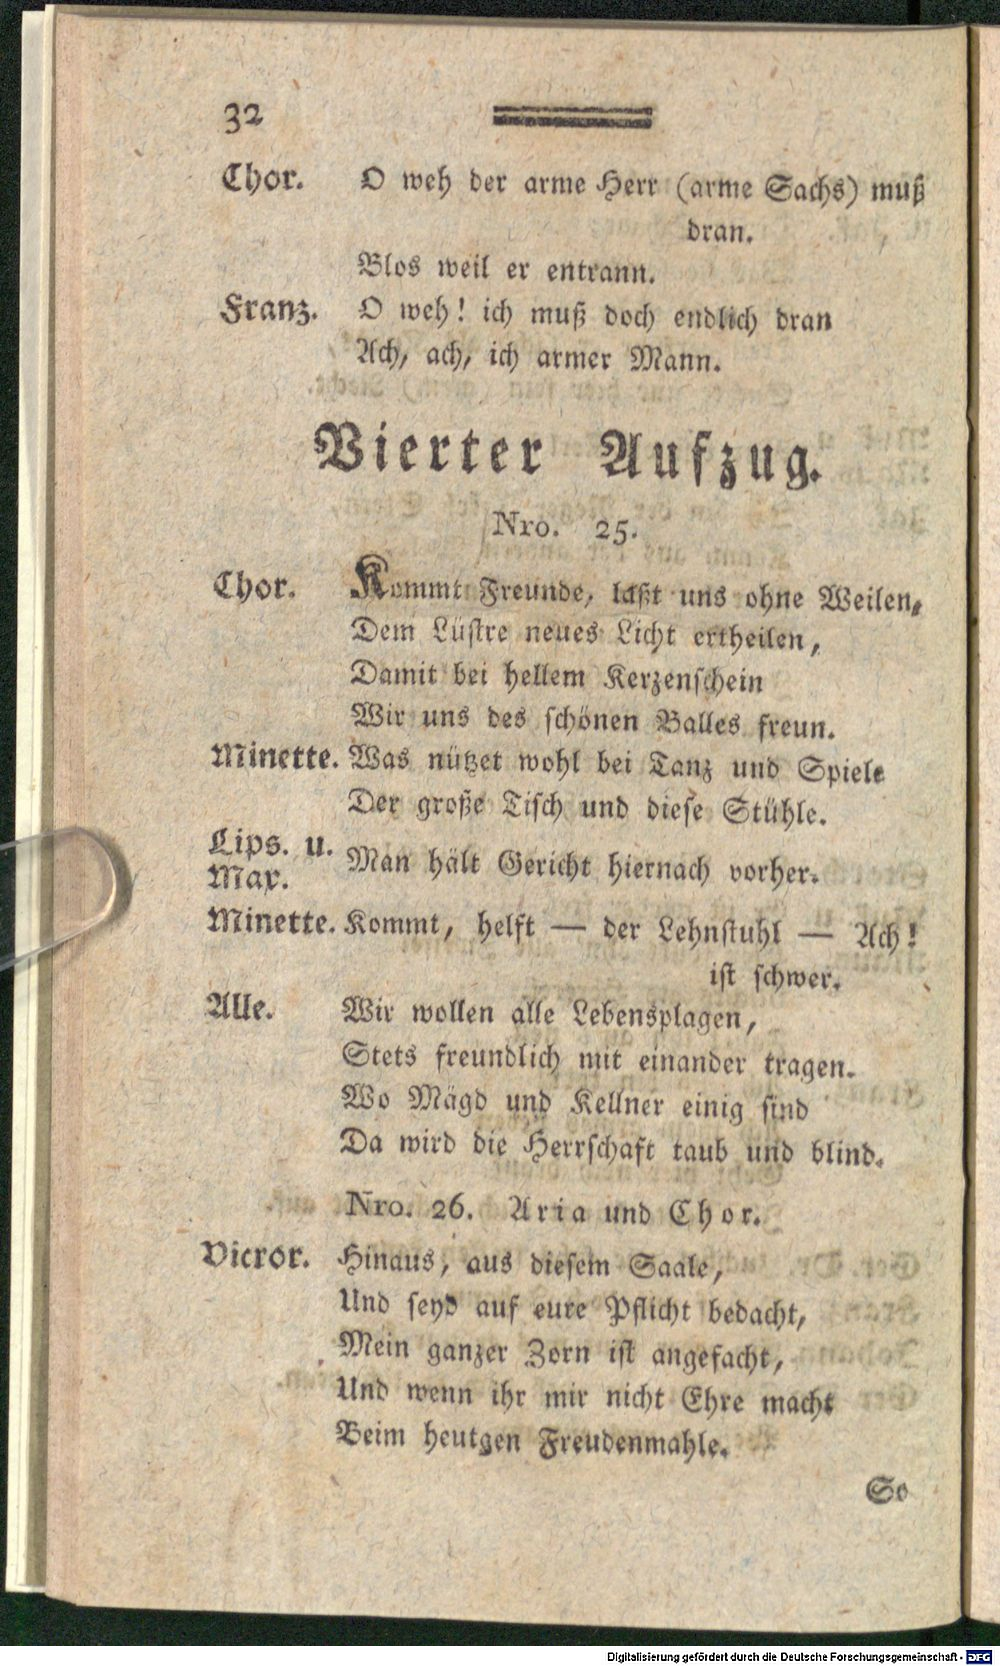 32
Chor. O weh der arme Herr (arme Sachs) muß
dran.
Blos weil er entrann.
Franz. O weh! ich muß doch endlich dran
Ach, ach, ich armer Mann.
Vierter Aufzug.
Nro. 25.
Chor. Kommt Freunde, laßt uns ohne Weilen,
Dem Lüstre neues Licht ertheilen,
Damit bei hellem Kerzenschein
Wir uns des schönen Balles freun.
Minette. Was nützet wohl bei Tanz und Spiele
Der große Tisch und diese Stühle.
Lips. u.
Max. Man hält Gericht hiernach vorher.
Minette. Kommt, helft — der Lehnstuhl — Ach!
ist schwer.
Alle. Wir wollen alle Lebensplagen,
Stets freundlich mit einander tragen.
Wo Mägd und Kellner einig sind
Da wird die Herrschaft taub und blind.
Nro. 26. Aria und Chor.
Victor. Hinaus, aus diesem Saale,
Und seyd auf eure Pflicht bedacht,
Mein ganzer Zorn ist angefacht,
Und wenn ihr mir nicht Ehre macht
Beim heutgen Freudenmahle.
So
Digitalisierung gefördert durch die Deutsche Forschungsgemeinschaft - DFG